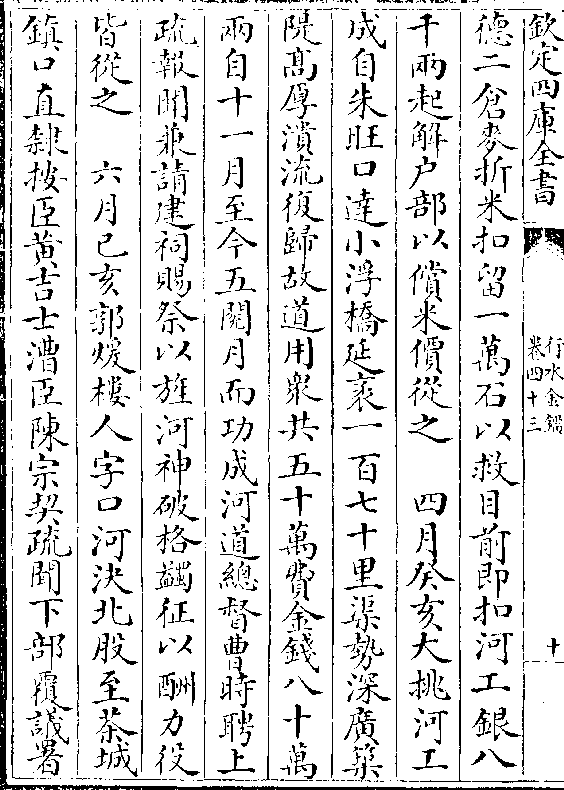 欽定四庫全書
行水金鑑
卷四十三
十
德二倉麥折米扣留一萬石以救目前即扣河工銀八
千兩起解户部以償米價從之　四月癸亥大挑河工
成自朱旺口達小浮橋延袤一百七十里渠勢深廣築
隄髙厚潰流復歸故道用衆共五十萬費金錢八十萬
兩自十一月至今五閱月而功成河道總督曹時聘上
疏報聞兼請建祠賜祭以旌河神破格蠲征以酬力役
皆從之　六月己亥郭煖樓人字口河決北股至茶城
鎮口直隸按臣黄吉士漕臣陳宗契疏聞下部覆議署